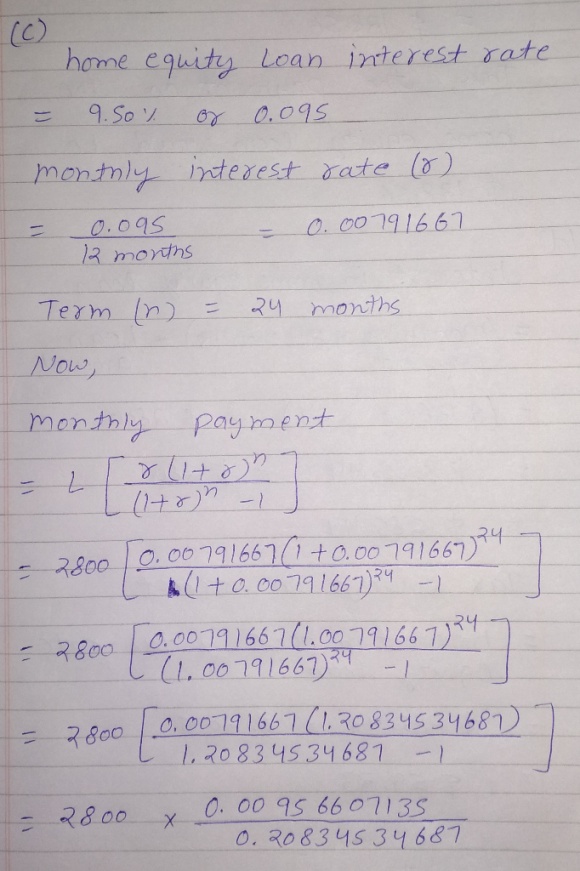 (c)
home equity Loan interest rate
= 9.50% or 0.095
monthly interest rate (r)
= 0.095 / 12 months = 0.00791667
Term (n) = 24 months
Now,
monthly payment
= L [ r(1+r)^n / (1+r)^n -1 ]
= 2800 [ 0.00791667(1+0.00791667)^24 / (1+0.00791667)^24 -1 ]
= 2800 [ 0.00791667(1.00791667)^24 / (1.00791667)^24 -1 ]
= 2800 [ 0.00791667(1.20834534687) / 1.20834534687 -1 ]
= 2800 x 0.00956607135 / 0.20834534687